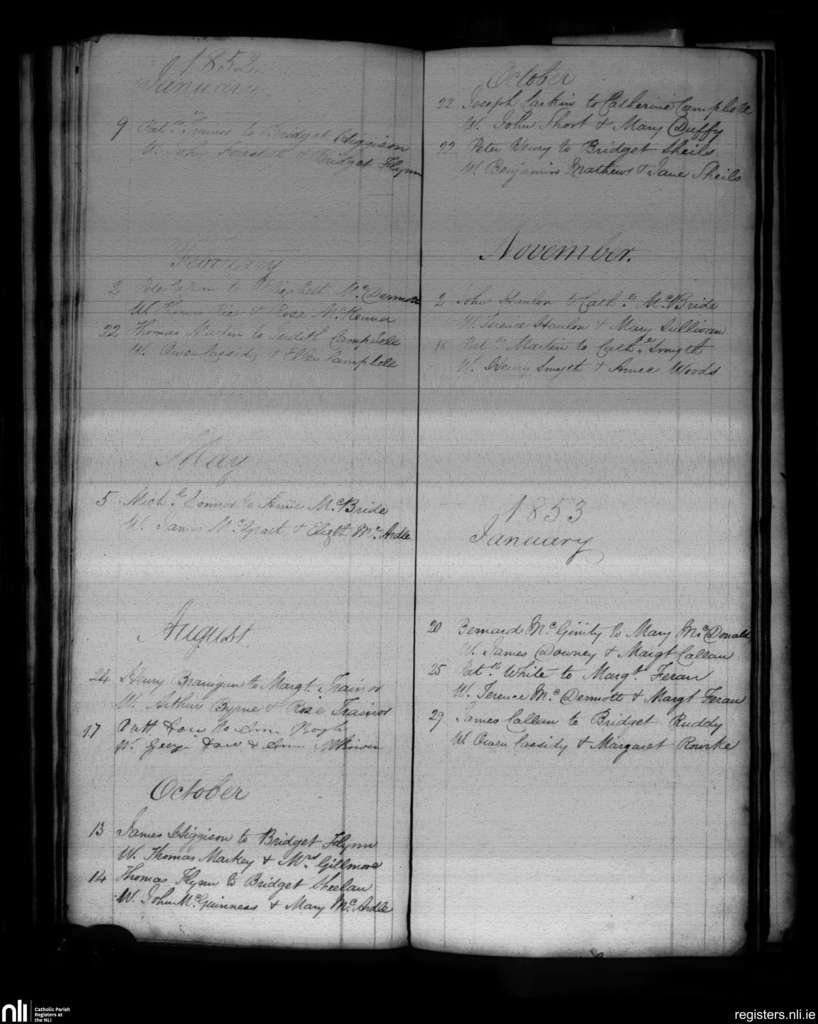 1852
January
9 Patk to Bridget Higgison
W. John & Bridget Flynn
February
2 to Mc Dermott
W. & Rose McKenna
22 Thomas Martin to Judith Campbell
W. Owen Cassidy & Ellen Campbell
May
5 Michl Connor to Anne McBride
W. James McGrath & Elizth McArdle
August
24 Henry Branigan to Margt Trainor
W. Arthur Byrne & Rose Trainor
17 Patt to Ann
W. George & Ann
October
13 James Higgison to Bridget Flynn
W. Thomas Markey & Mrs Gillmore
14 Thomas Flynn to Bridget Sheelan
W. John McGuinness & Mary McArdle
October
22 Joseph Larkin to Catherine Campbell
W. John Short & Mary Duffy
22 Peter to Bridget Sheils
W. Benjamin Mathews & Jane Sheils
November.
2 John Hanlon to Cathn McBride
W. Terence Hanlon & Mary Sullivan
18 Patk Martin to Cathne Smyth
W. Henry Smyth & Anne Woods
1853
January
20 Bernard McGinity to Mary McDonald
W. James Downey & Margt Callan
25 Patk White to Margt Feran
W. Terence McDermott & Margt Feran
29 James Callan to Bridget Ruddy
W Owen Cassidy & Margaret Rourke
nli Catholic Parish
Registers at
the NLI
registers.nli.ie